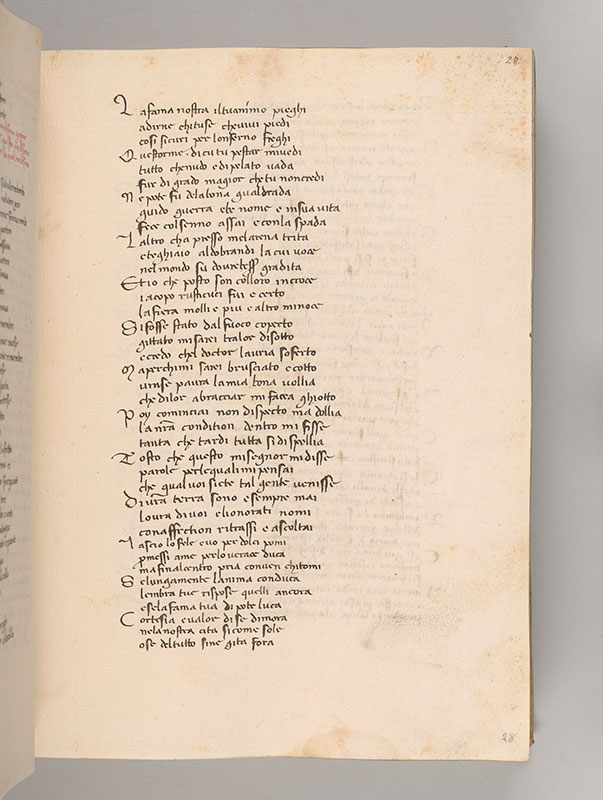 28
La fama nostra il tuanimo pieghi
adirne chi tuse che vivi piedi
cosi sicuri per lonferno freghi
Questorme di cu tu pestar mi vedi
tutto che nudo e dipelato vada
fue di grado magior che tu non credi
Nepote fu dela bona gualdrada
guido guerra ebe nome e in sua vita
fece col senno assai e con la spada
Laltro cha presso me larena trita
e teghiaio aldobrandi la cui voce
nel mondo su dovrebess gradita
Et io che posto son colloro in croce
iacopo rusticuci fui e certo
la fiera moglie piu e altro minoce
Si fosse stato dal fuoco coperto
gittato mi sarei tralor disotto
e credo chel doctor lauria soferto
Ma perchi mi sarei brusciato e cotto
vinse paura la mia bona vollia
che dilor abracciar mi facea ghiotto
Poy cominciai non dispecto ma dollia
la nr̃a condition dentro mi fisse
tanta che tardi tutta si dispollia
Tosto che questo mi segnor mi disse
parole per le quali mi pensai
che qual voi siete tal gente venisse
Di vr̃a terra sono e sempre mai
lovra di voi e lionorati nomi
con affection ritrassi e ascoltai
Lascio lo fele e vo per dolci pomi
ꝓmessi ame per lo verace duca
ma fin al centro pria convien chi tomi
Se lungamente lanima conduca
le membra tue rispose quelli ancora
e se la fama tua di pote luca
Cortesia e valor di se dimora
nela nostra cita si come sole
o se del tutto sine gita fora
28